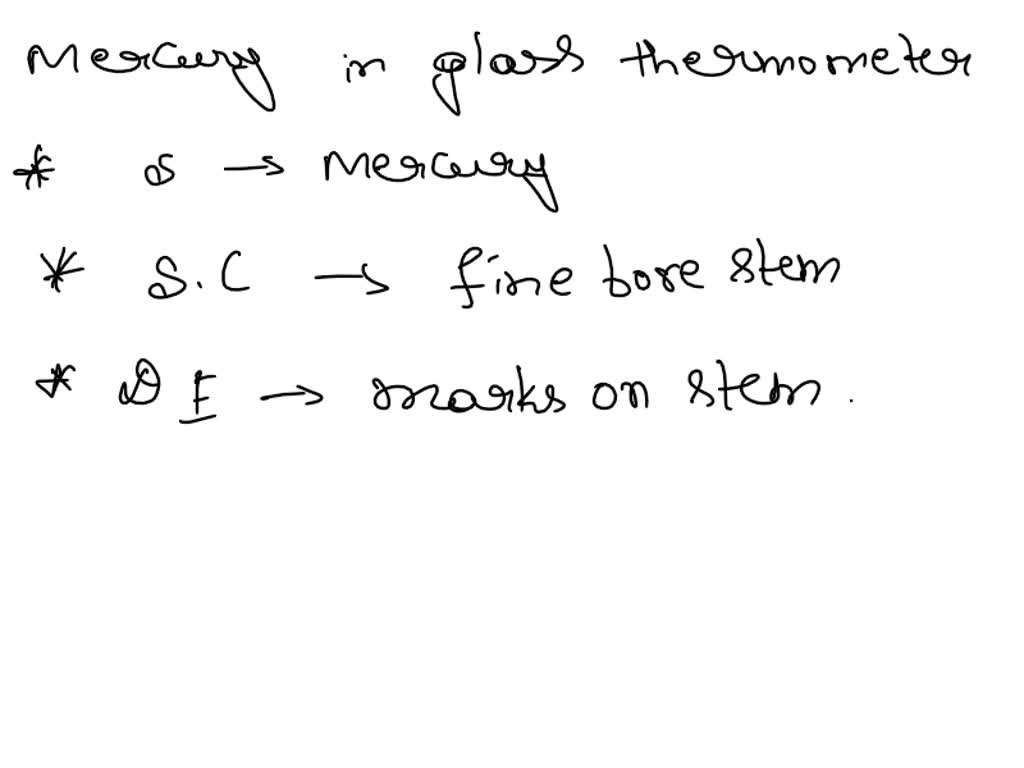 Mercury in glass thermometer
* S → Mercury
* S.C → fine bore stem
* D E → marks on stem.